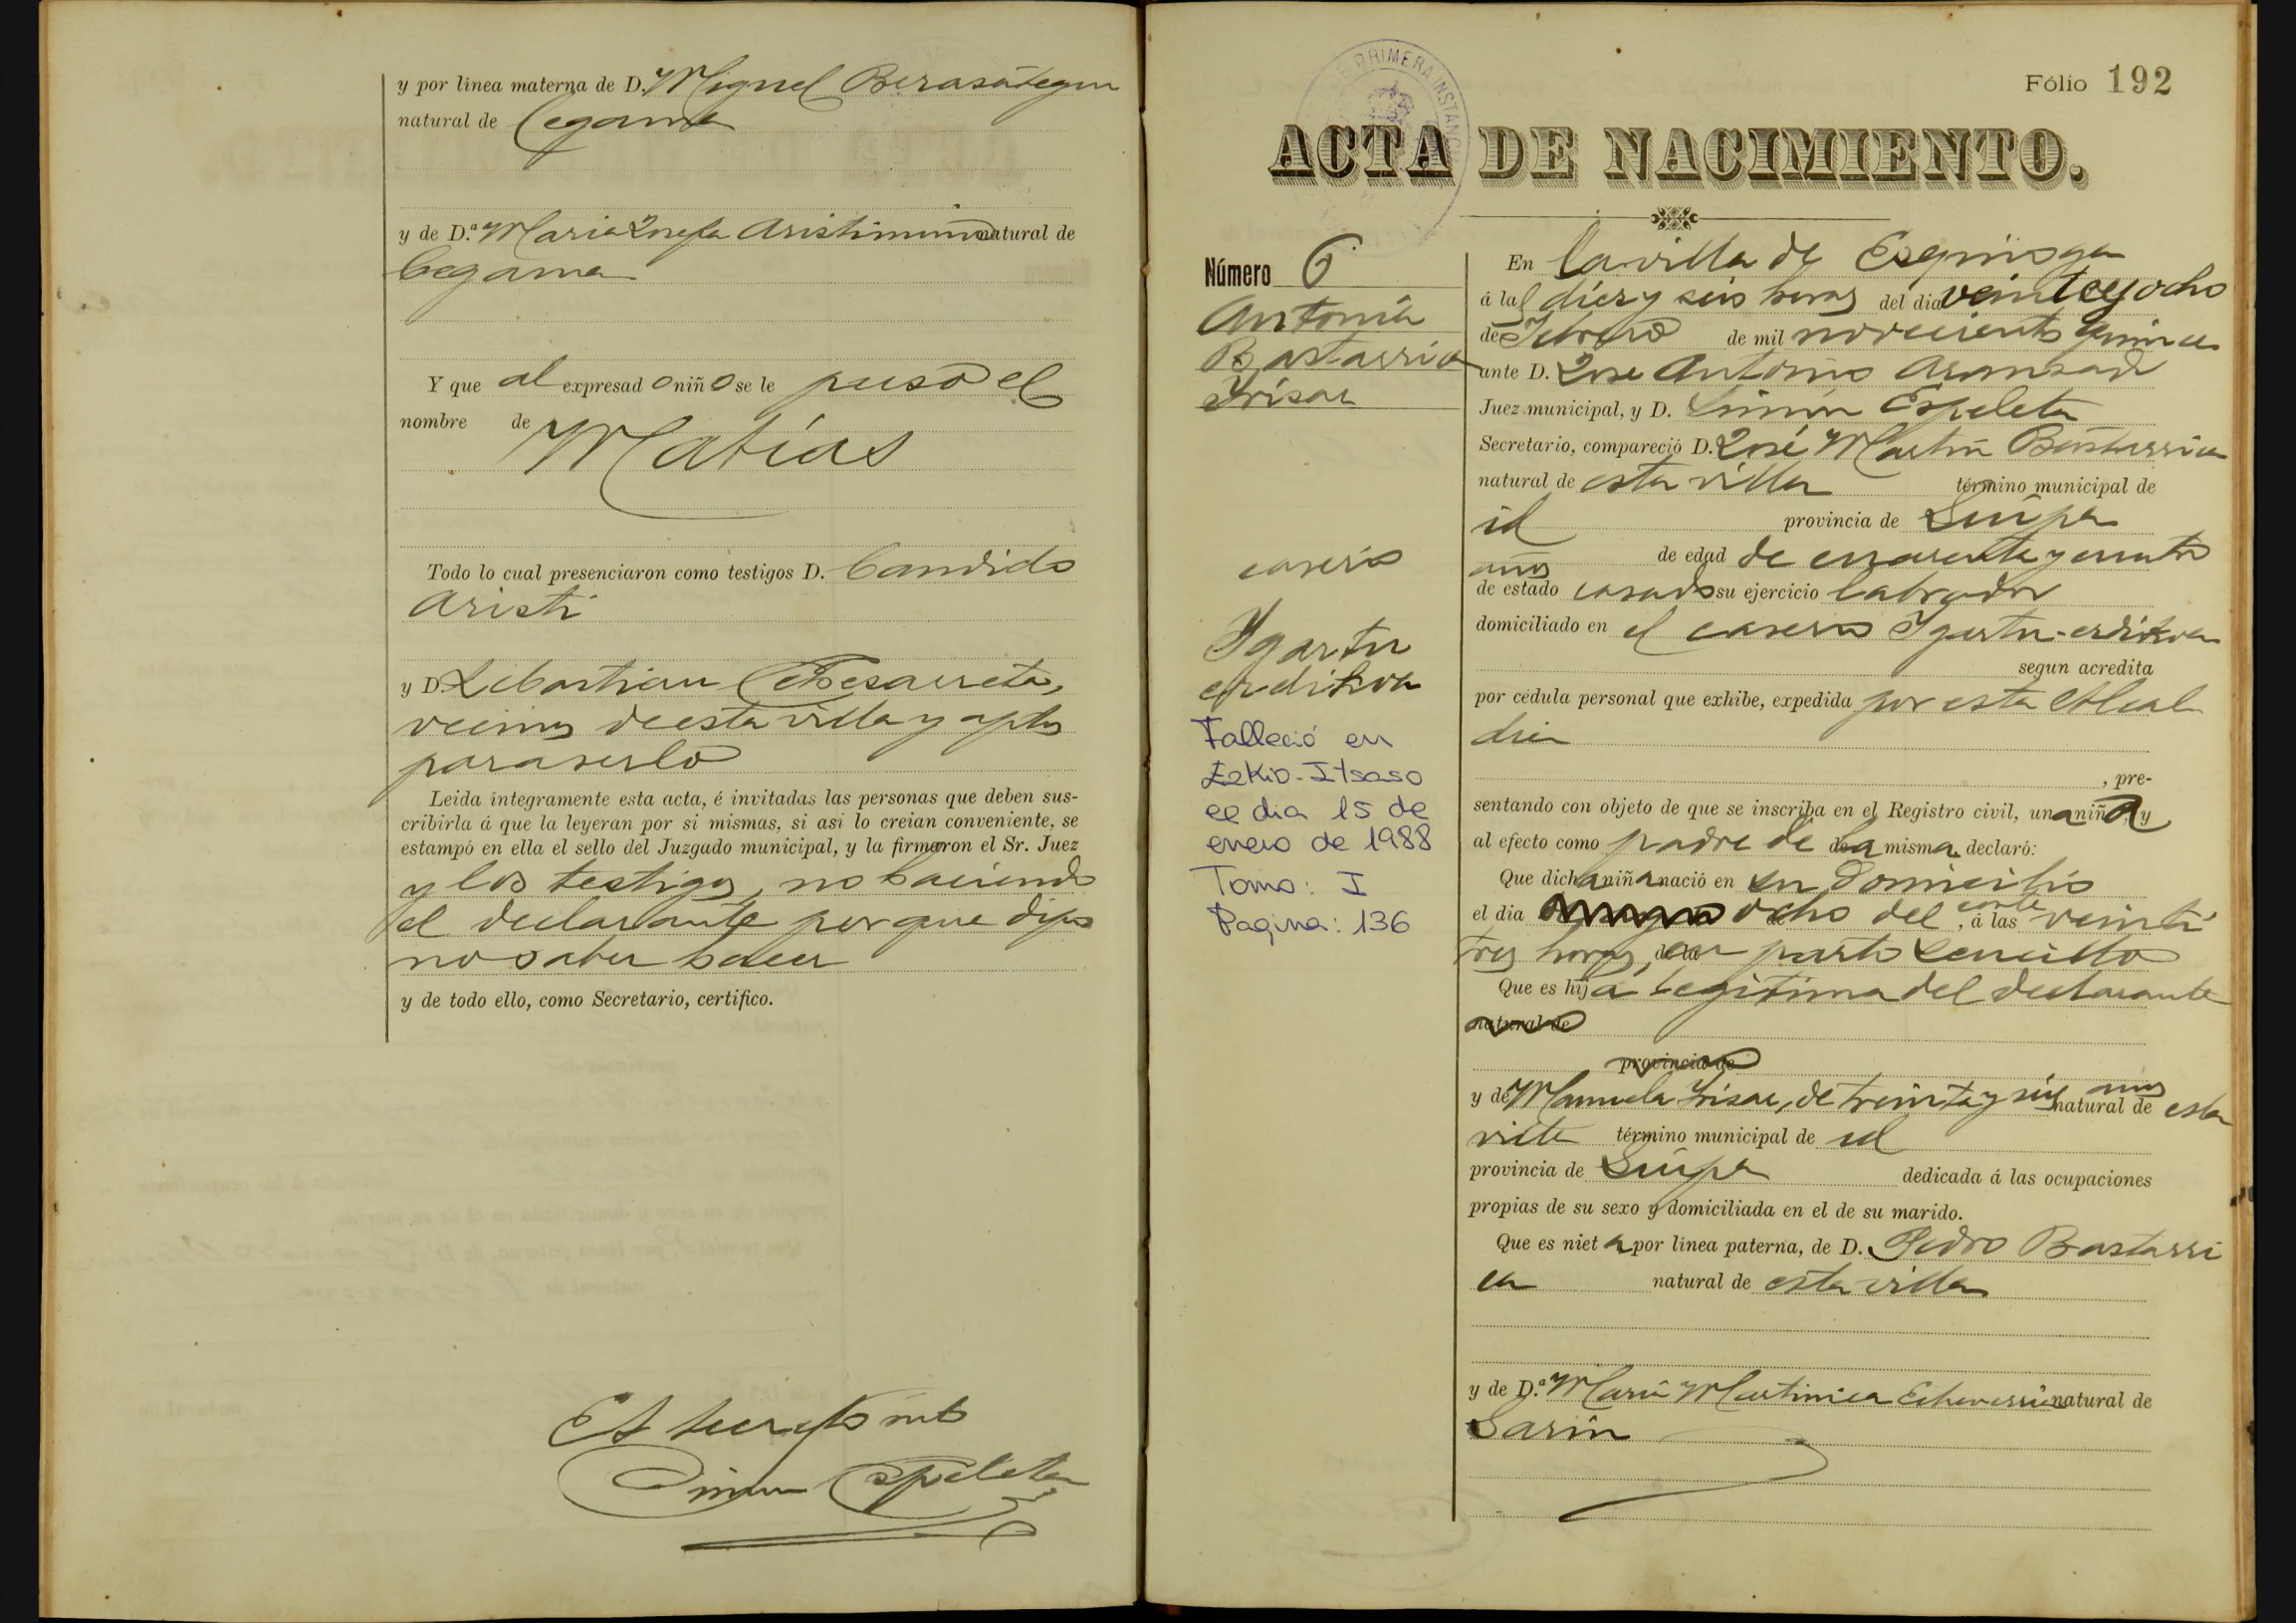 y por línea materna de D. Miguel Berasategui
natural de Cegama
y de D.ª Maria Josefa Aristimuño natural de
Cegama
Y que al expresado niño se le puso el
nombre de
Matias
Todo lo cual presenciaron como testigos D. Candido
Aristi
y D. Sebastian
vecinos de esta villa y aptos
para serlo
Leida íntegramente esta acta, é invitadas las personas que deben sus-
cribirla á que la leyeran por si mismas, si asi lo creian conveniente, se
estampó en ella el sello del Juzgado municipal, y la firmaron el Sr. Juez
y los testigos, no haciendo
el declarante porque dijo
no saber hacer
y de todo ello, como Secretario, certifico.
El Secretario
Simon Espeleta
PRIMERA INSTANC
Fólio 192
ACTA DE NACIMIENTO.
Número 6
Antonia
Bastarrica
Irizar
caserio
Igartu
erdikoa
Falleció en
Ezkio-Itsaso
el dia 15 de
enero de 1988
Tomo: I
Pagina: 136
En la villa de Ezquioga
á las diez y seis horas del dia veinte y ocho
de Febrero de mil novecientos quince
ante D. José Antonio Aramsadi
Juez municipal, y D. Simón Espeleta
Secretario, compareció D. José Martin Bastarrica
natural de esta villa término municipal de
id provincia de Guipa
años de edad de cuarenta y cuatro
de estado casado su ejercicio labrador
domiciliado en el caserio Igartu-erdikoa
segun acredita
por cédula personal que exhibe, expedida por esta Alcal
dia
, pre-
sentando con objeto de que se inscriba en el Registro civil, una niña, y
al efecto como padre de la misma declaró:
Que dicha niña nació en su domicilio
el dia ocho del corte, á las veinti
tres horas, de la parto sencillo
Que es hija legitima del declarante
natural de
provincia de
y de Manuela Irizar, de treinta y seis años natural de esta
villa término municipal de id
provincia de Guipa dedicada á las ocupaciones
propias de su sexo y domiciliada en el de su marido.
Que es nieta por línea paterna, de D. Pedro Bastarri
ca natural de esta villa
y de D.ª Maria Martinica Echeverria natural de
Gavin